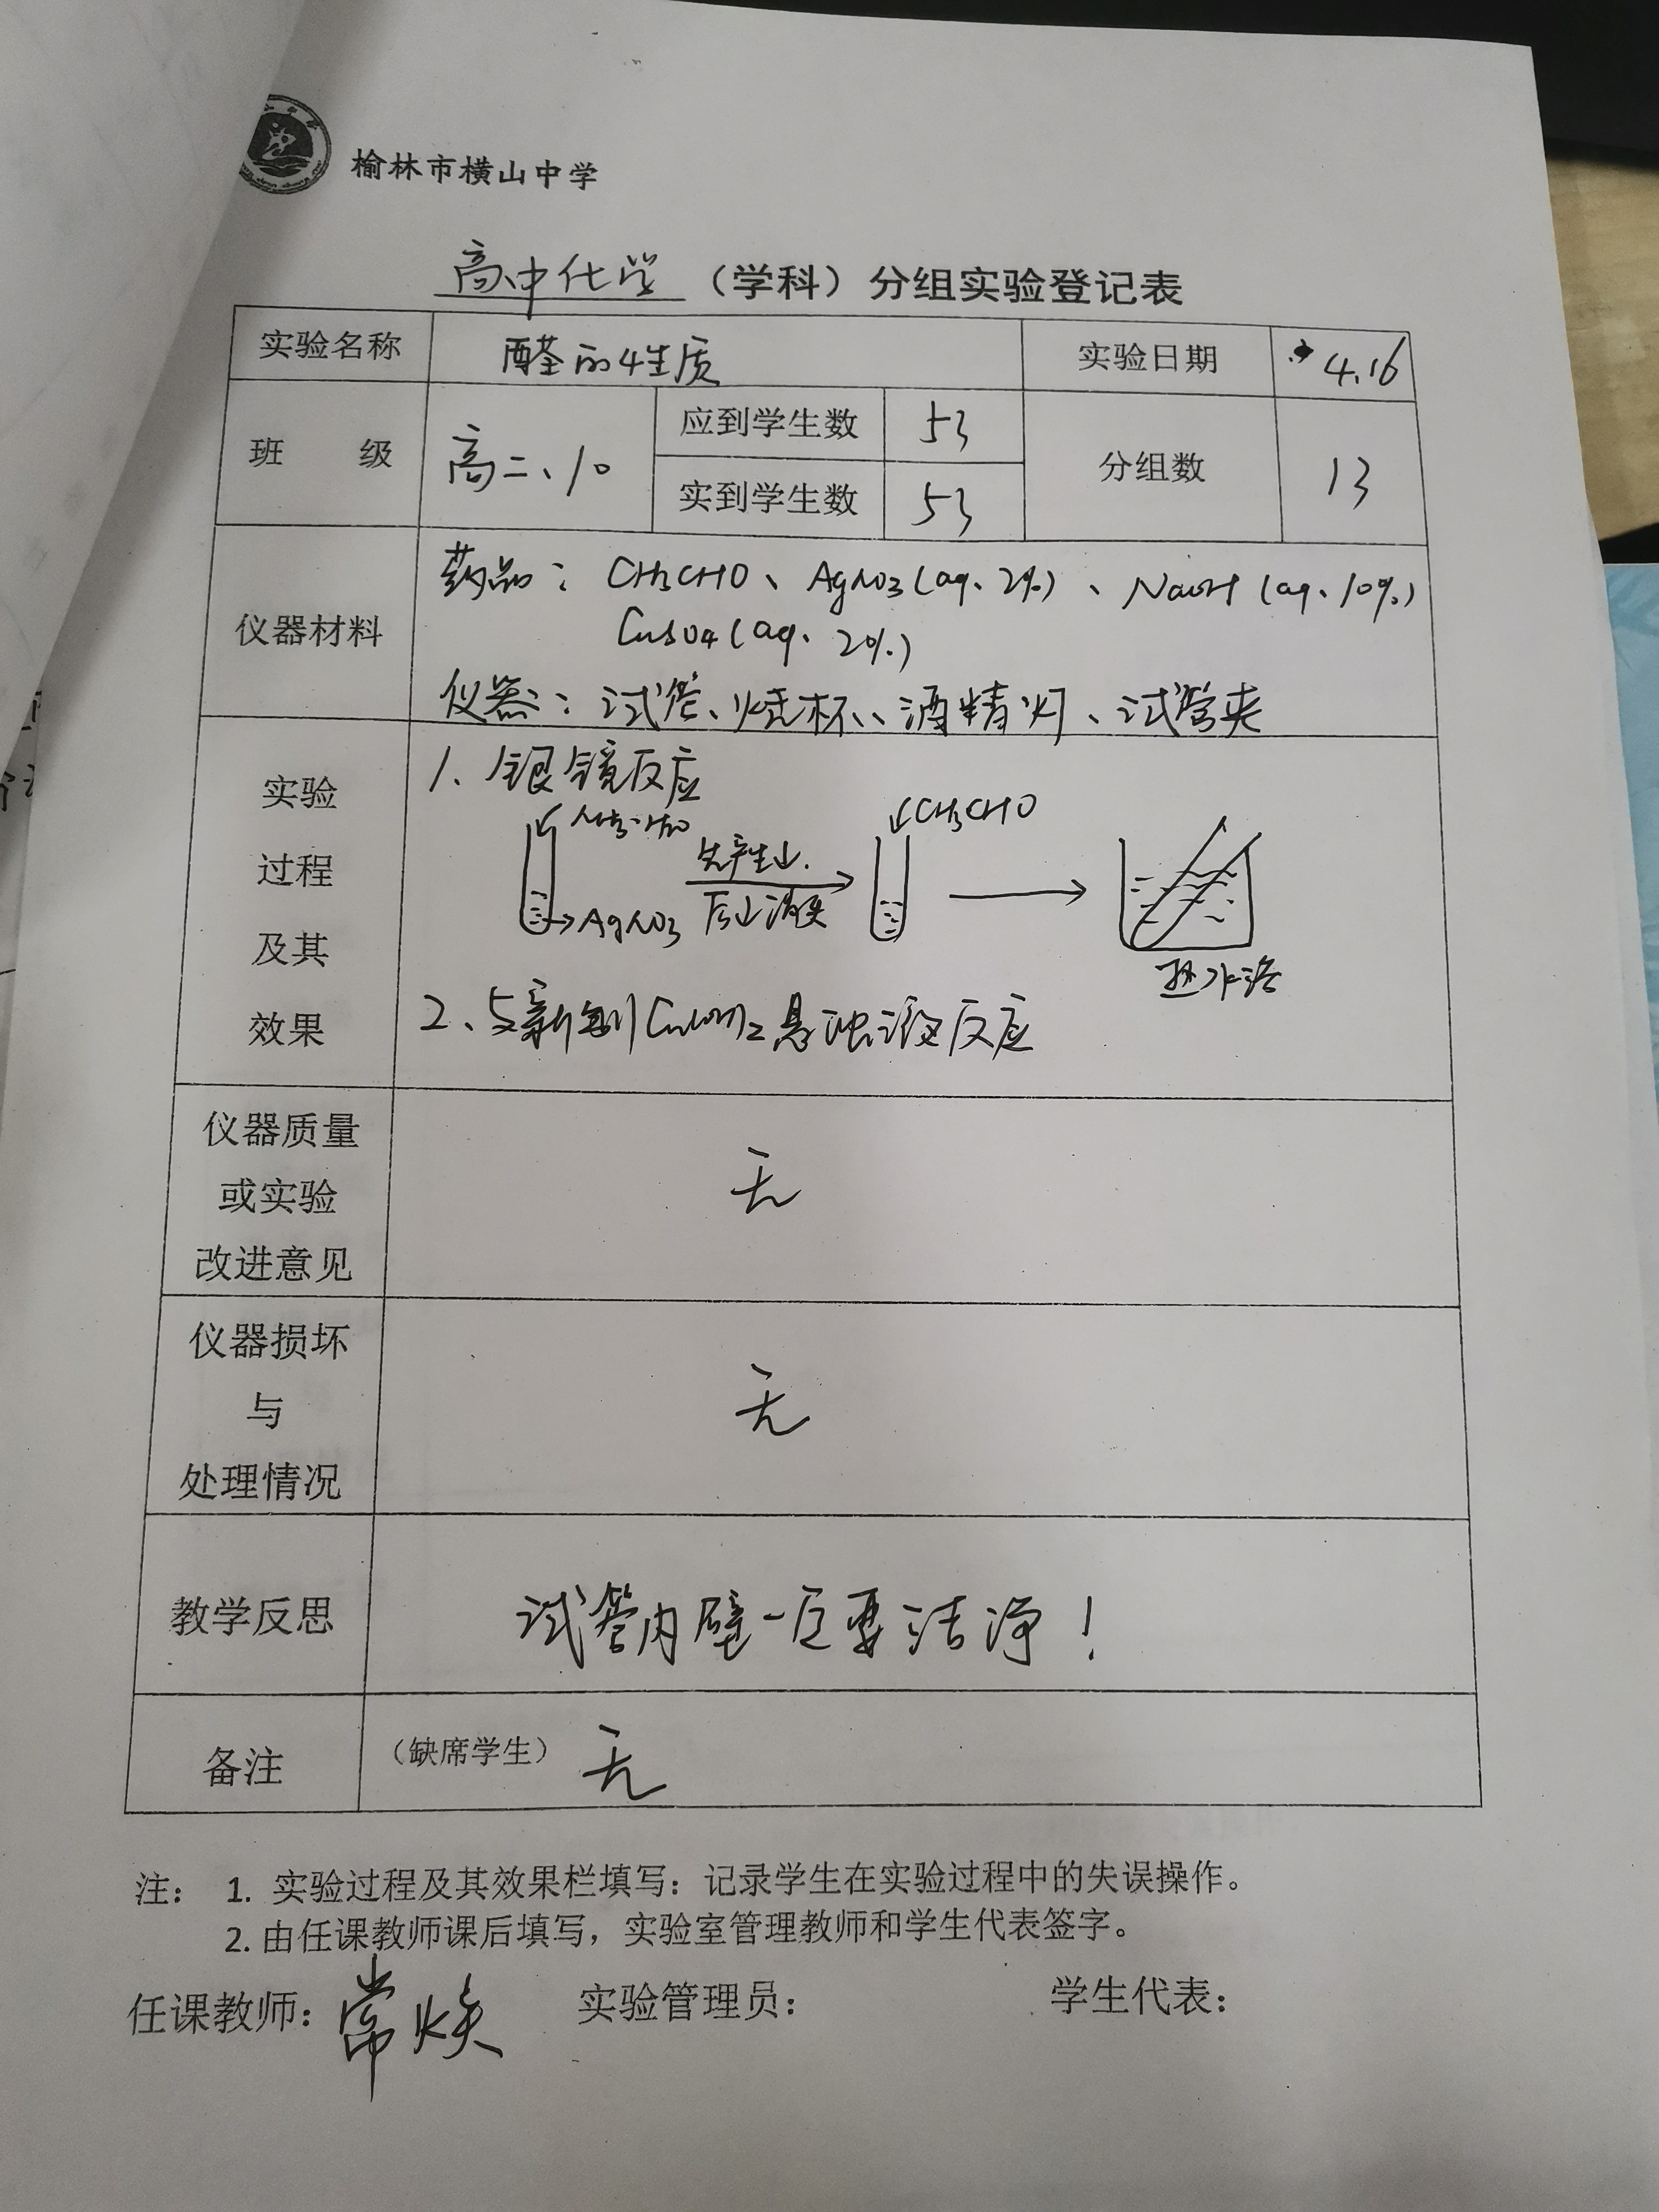 榆林市横山中学
高中化学（学科）分组实验登记表
实验名称 醛的性质 实验日期 4.16
班 级 高二、10 应到学生数 53 分组数 13
实到学生数 53
仪器材料
药品：CH3CHO、AgNO3(aq、2%)、NaOH(aq、10%)
CuSO4(aq、2%)
仪器：试管、烧杯、酒精灯、试管夹
实验
过程
及其
效果
1、银镜反应
NH3·H2O
CH3CHO
先产生↓
后↓消失
AgNO3
热水浴
2、与新制Cu(OH)2悬浊液反应
仪器质量
或实验
改进意见
无
仪器损坏
与
处理情况
无
教学反思 试管内壁一定要洁净！
备注 （缺席学生） 无
注： 1. 实验过程及其效果栏填写：记录学生在实验过程中的失误操作。
2. 由任课教师课后填写，实验室管理教师和学生代表签字。
任课教师： 常 实验管理员： 学生代表：